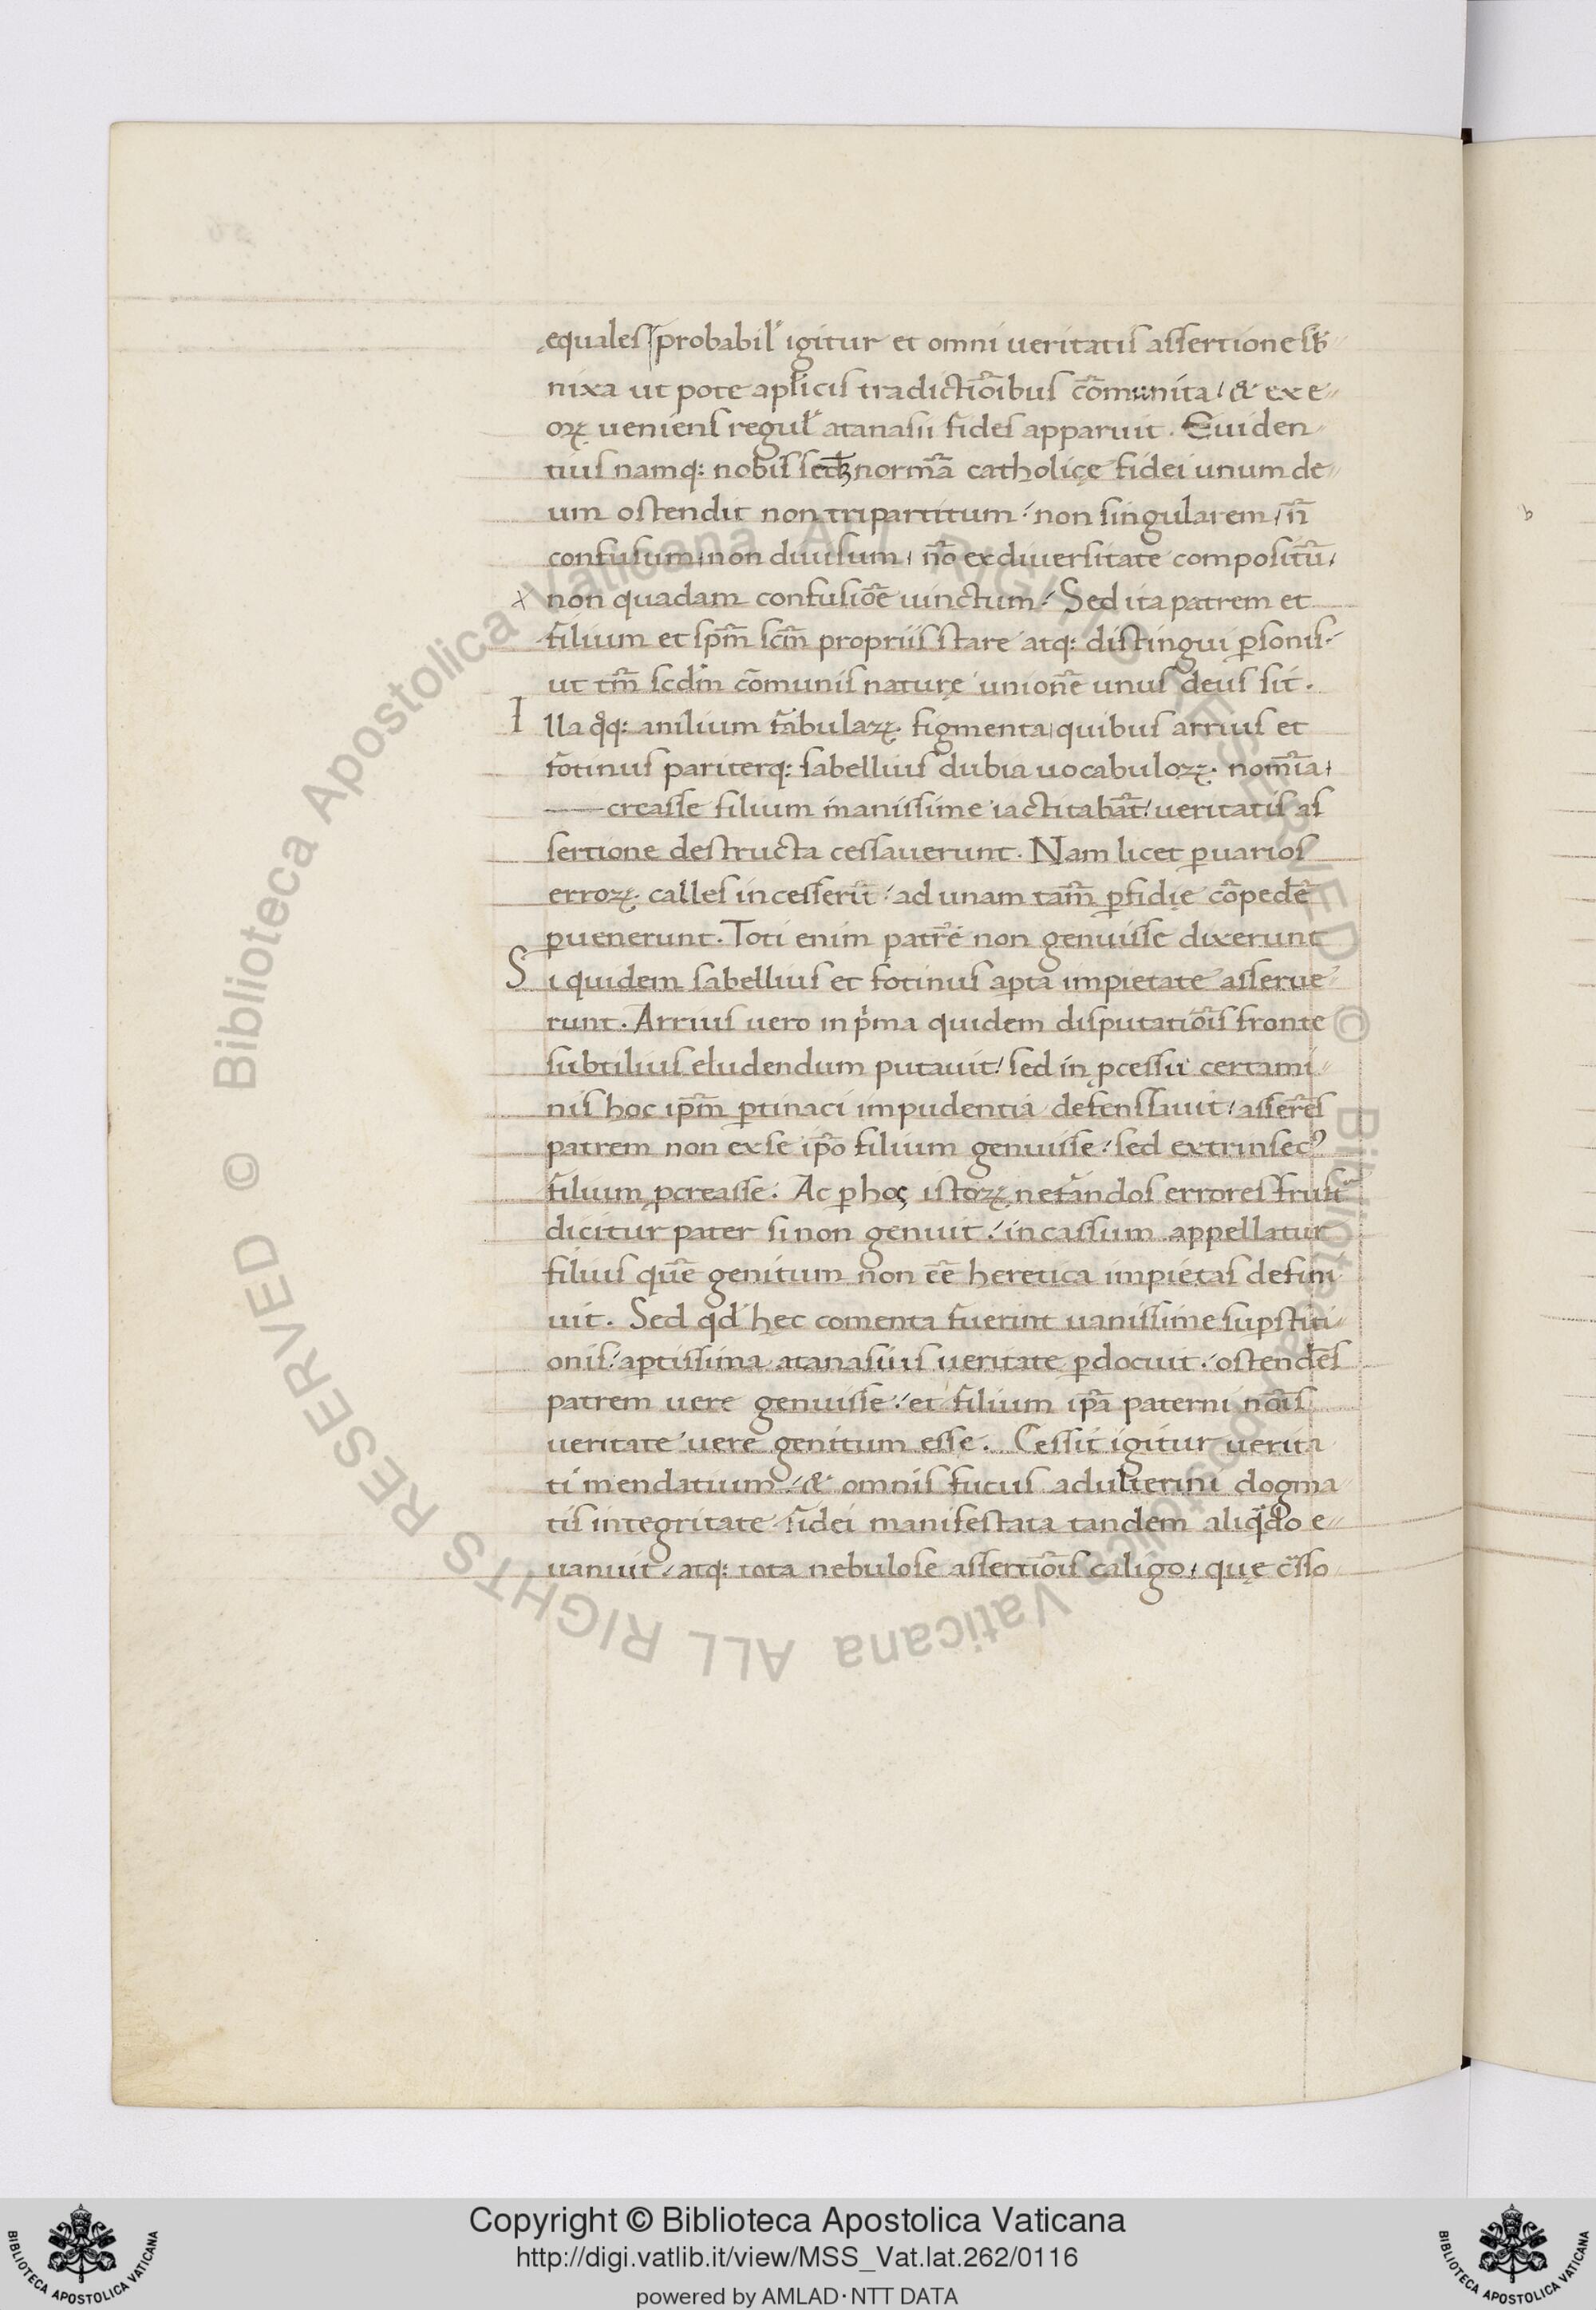 ęquales probabil' igitur et omni ueritatis assertione sb̄
nixa ut pote aplicis tradictiōibus cōmunita / & ex e
oꝝ ueniens regul' atanasii fides apparuit. Euiden
tius namq: nobis normā catholicę fidei unum de
um ostendit non tripartitum / non singularem / n̄
confusum / non diuisum / nō ex diuersitate compositū /
x non quadam confusiōe uinctum / Sed ita patrem et
filium et spm̄ scm̄ propriis stare atq: distingui ꝑsonis
ut tm̄ scdm̄ cōmunis naturę unionē unus deus sit.
Illa qq: anilium fabulaꝝ figmenta quibus arrius et
fotinus pariterq: sabellius dubia uocabuloꝝ nomīa /
creasse filium inanissime iactitabāt / ueritatis as
sertione destructa cessauerunt. Nam licet ꝑuarios
erroꝝ calles incesserūt / ad unam tam̄ ꝑfidię cōpedē
ꝑuenerunt. Toti enim patrē non genuisse dixerunt
Si quidem sabellius et fotinus apta impietate asserue
runt. Arrius uero in pͥma quidem disputatiōis fronte
subtilius eludendum putauit / sed in ꝓcessu certami
nis hoc ipm̄ ꝑtinaci impudentia defenssauit / asserēs
patrem non ex se ipō filium genuisse / sed extrinsecꝰ
filium ꝓcreasse. Ac ꝑ hoc istoꝝ nefandos errores frust
dicitur pater si non genuit / incassum appellatur
filius quē genitum non eē heretica impietas defini
uit. Sed qd hec comenta fuerint uanissime supstiti
onis / aptissima atanasius ueritate ꝑdocuit / ostendēs
patrem uere genuisse / et filium ipā paterni noīs
ueritate uere genitum esse. Cessit igitur uerita
ti mendatium / & omnis fucus adulterini dogma
tis integritate fidei manifestata tandem aliqdo e
uanuit / atq: tota nebulose assertiōis caligo / quę
b
© Biblioteca Apostolica Vaticana ALL RIGHTS RESERVED © Biblioteca Apostolica Vaticana ALL RIGHTS RESERVED
Copyright © Biblioteca Apostolica Vaticana
http://digi.vatlib.it/view/MSS_Vat.lat.262/0116
powered by AMLAD·NTT DATA
BIBLIOTECA APOSTOLICA VATICANA
BIBLIOTECA APOSTOLICA VATICANA